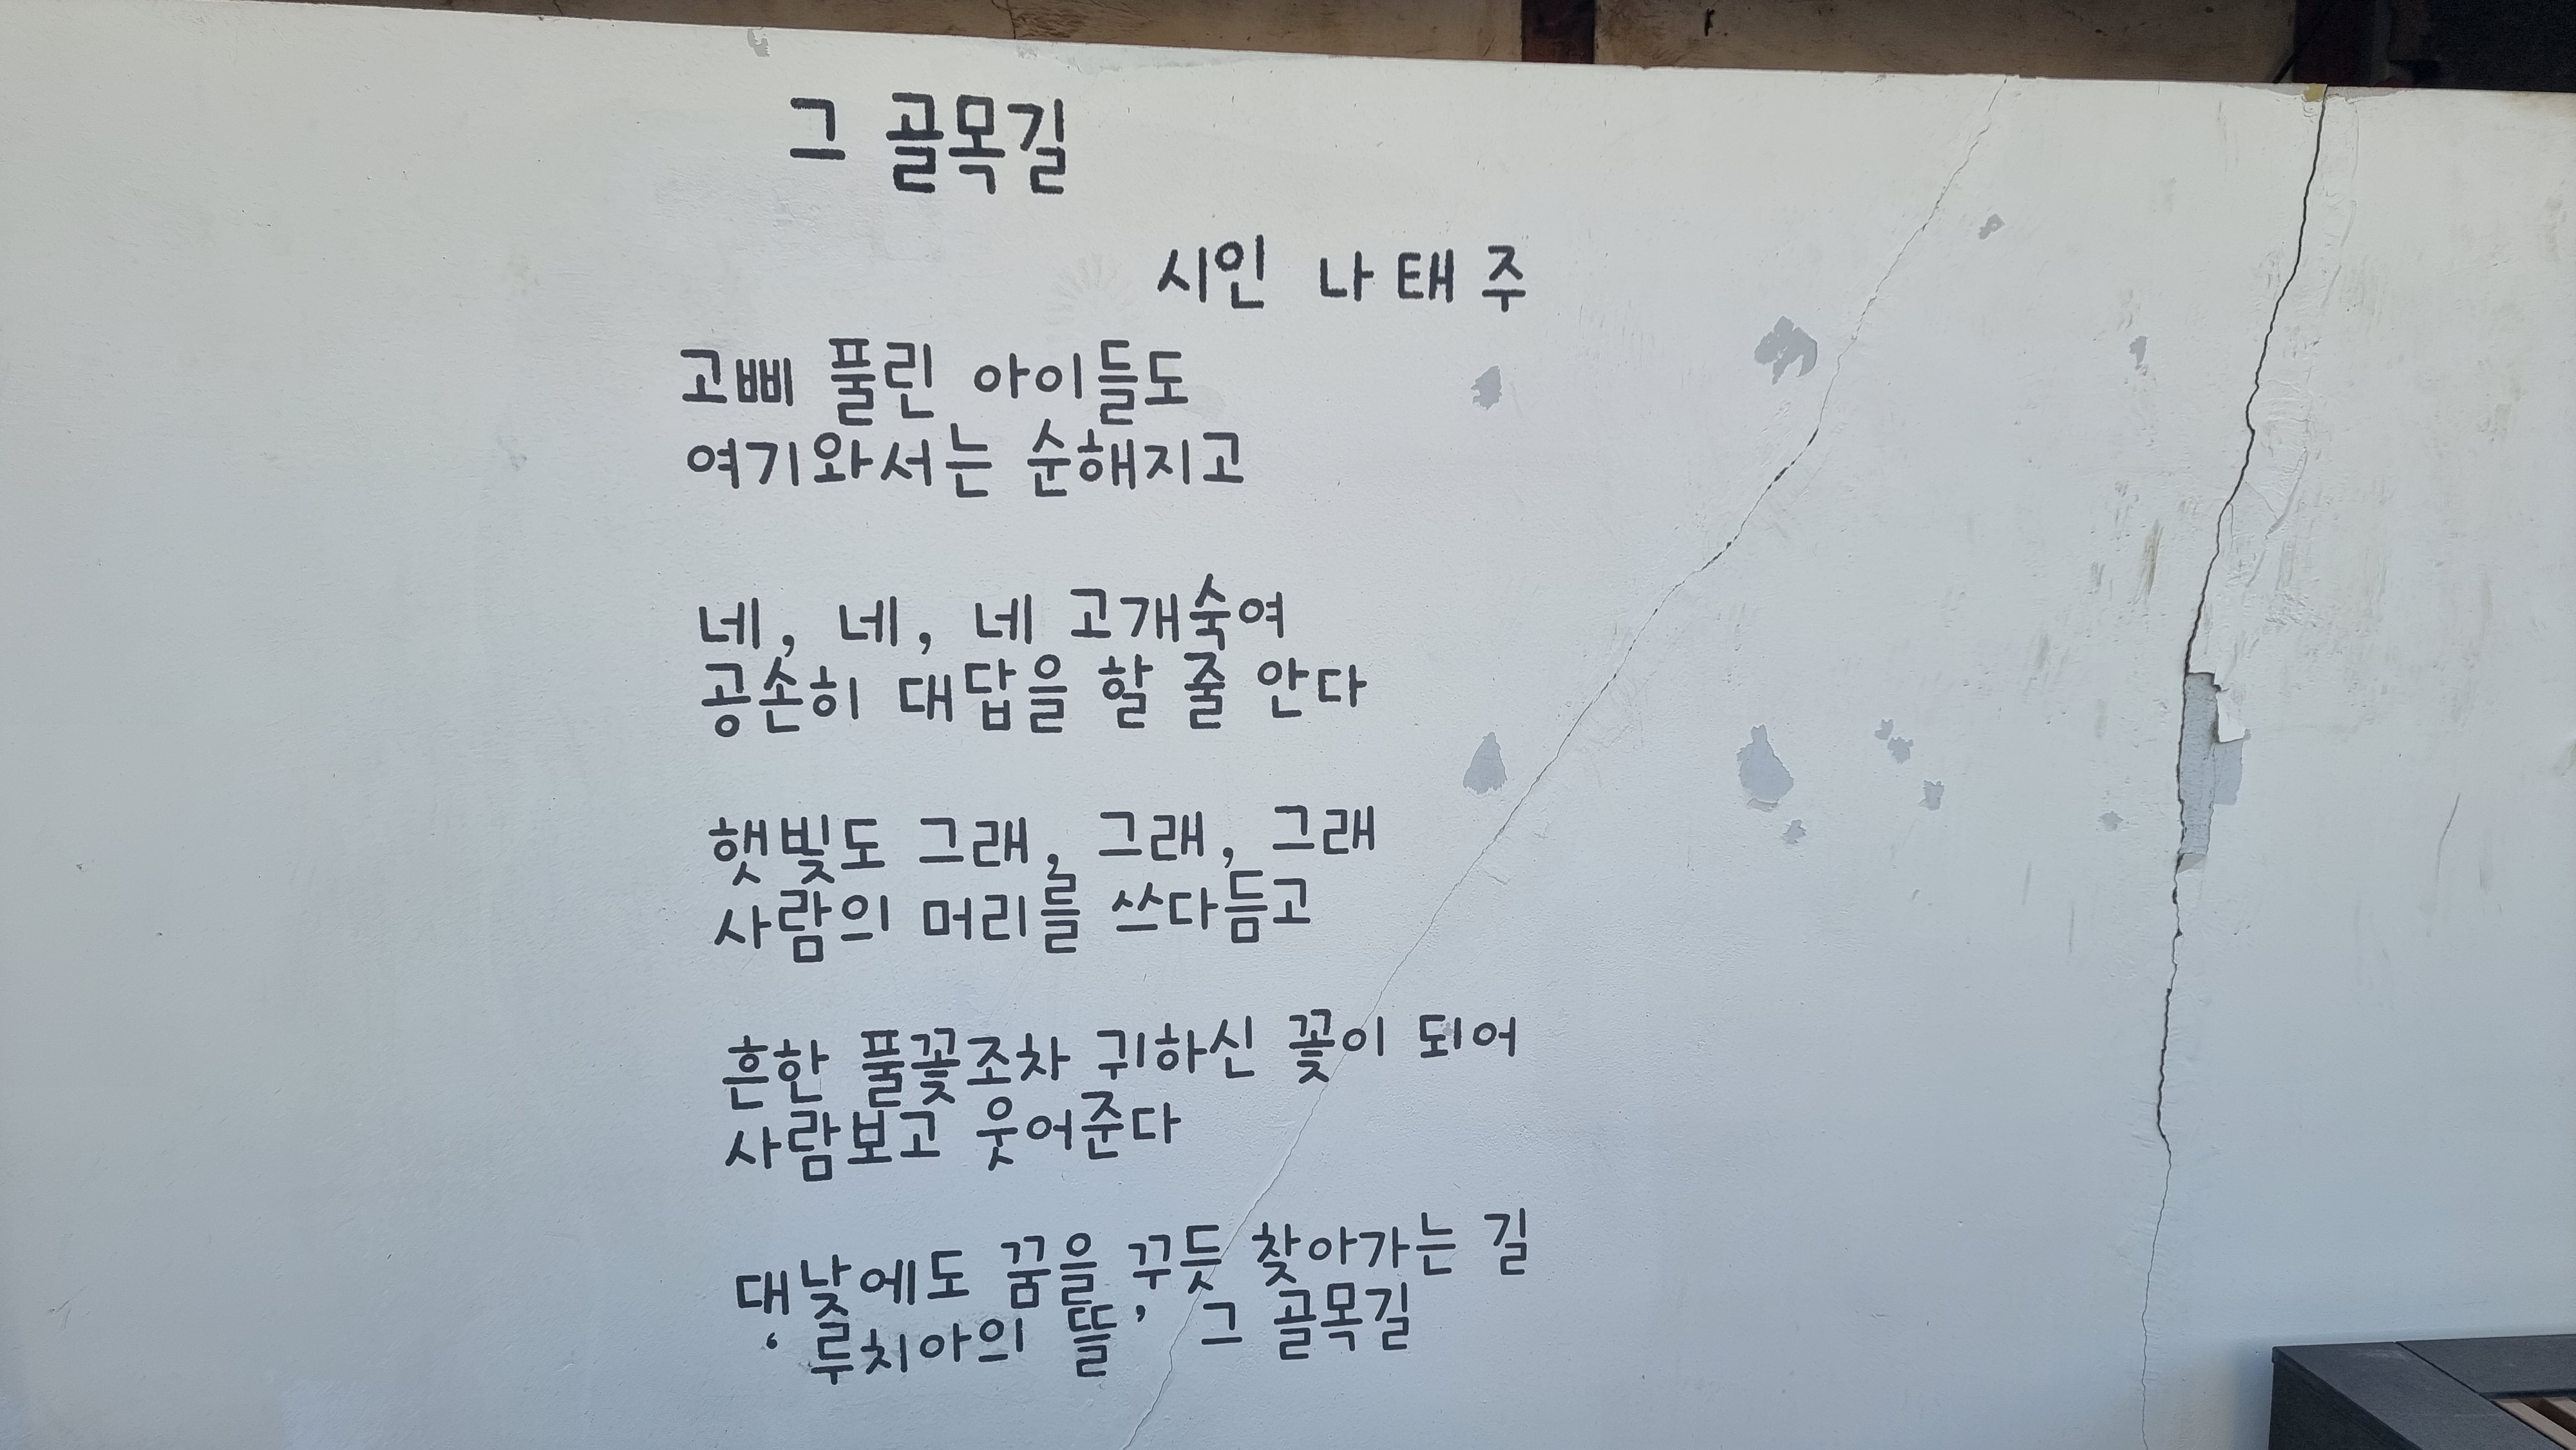 그 골목길
시인 나태주
고삐 풀린 아이들도
여기와서는 순해지고
네, 네, 네 고개숙여
공손히 대답을 할 줄 안다
햇빛도 그래, 그래, 그래
사람의 머리를 쓰다듬고
흔한 풀꽃조차 귀하신 꽃이 되어
사람보고 웃어준다
대낮에도 꿈을 꾸듯 찾아가는 길
‘루치아의 뜰’ 그 골목길